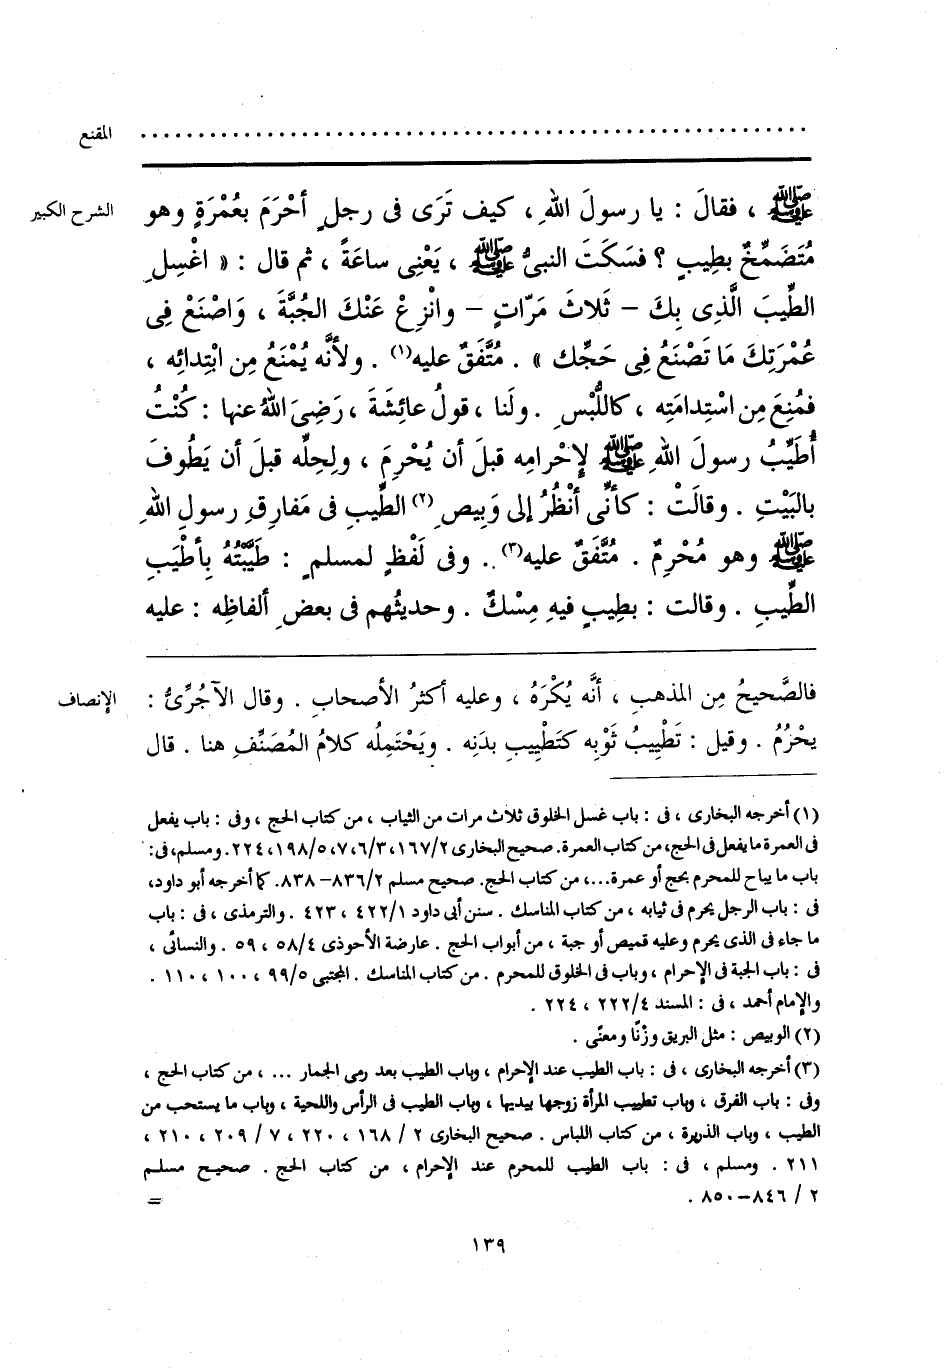 المقنع ............................................................
الشرح الكبير
ﷺ ، فقالَ : يا رسولَ اللهِ ، كيف تَرَى فى رجلٍ أحْرَمَ بعُمْرَةٍ وهو
مُتَضَمِّخٌ بطِيبٍ ؟ فسَكَتَ النبىُّ ﷺ ، يَعْنِى ساعَةً ، ثم قال : « اغْسِلِ
الطِّيبَ الَّذِى بِكَ – ثَلاثَ مَرّاتٍ – وانْزِعْ عَنْكَ الجُبَّةَ ، وَاصْنَعْ فِى
عُمْرَتِكَ مَا تَصْنَعُ فِى حَجِّك » . مُتَّفَقٌ عليه(١) . ولأنَّه يُمْنَعُ مِن ابْتِدائِه ،
فمُنِعَ مِن اسْتِدامَتِه ، كاللُّبْسِ . ولَنا ، قولُ عائِشَةَ ، رَضِىَ اللهُ عنها : كُنْتُ
أُطَيِّبُ رسولَ اللهِ ﷺ لإِحْرامِه قبلَ أن يُحْرِمَ ، ولِحِلِّه قبلَ أن يَطُوفَ
بالبَيْتِ . وقالَتْ : كأنِّى أنْظُرُ إلى وَبِيصِ(٢) الطِّيبِ فى مَفارِقِ رسولِ اللهِ
ﷺ وهو مُحْرِمٌ . مُتَّفَقٌ عليه(٣) . وفى لَفْظٍ لمسلمٍ : طَيَّبْتُهُ بِأطْيَبِ
الطِّيبِ . وقالت : بطِيبٍ فيهِ مِسْكٌ . وحديثُهم فى بعضِ ألفاظِه : عليه
الإنصاف
فالصَّحيحُ مِن المذهبِ ، أنَّه يُكْرَهُ ، وعليه أكثرُ الأصحابِ . وقال الآجُرِّىُّ :
يحْرُمُ . وقيل : تَطْيِيبُ ثَوْبِه كتَطْيِيبِ بدَنِه . ويَحْتَمِلُه كلامُ المُصَنِّفِ هنا . قال
(١) أخرجه البخارى ، فى : باب غسل الخلوق ثلاث مرات من الثياب ، من كتاب الحج ، وفى : باب يفعل
فى العمرة ما يفعل فى الحج، من كتاب العمرة. صحيح البخارى ١٦٧/٢، ٦/٣، ٧، ١٩٨/٥، ٢٢٤. ومسلم، فى:
باب ما يباح للمحرم بحج أو عمرة...، من كتاب الحج. صحيح مسلم ٨٣٦/٢– ٨٣٨. كما أخرجه أبو داود،
فى : باب الرجل يحرم فى ثيابه ، من كتاب المناسك . سنن أبى داود ٤٢٢/١ ، ٤٢٣ . والترمذى ، فى : باب
ما جاء فى الذى يحرم وعليه قميص أو جبة ، من أبواب الحج . عارضة الأحوذى ٥٨/٤ ، ٥٩ . والنسائى ،
فى : باب الجبة فى الإحرام ، وباب فى الخلوق للمحرم . من كتاب المناسك . المجتبى ٩٩/٥ ، ١٠٠ ، ١١٠ .
والإمام أحمد ، فى : المسند ٢٢٢/٤ ، ٢٢٤ .
(٢) الوبيص : مثل البريق وزْنًا ومعنًى .
(٣) أخرجه البخارى ، فى : باب الطيب عند الإحرام ، وباب الطيب بعد رمى الجمار ... ، من كتاب الحج ،
وفى : باب الفرق ، وباب تطييب المرأة زوجها بيديها ، وباب الطيب فى الرأس واللحية ، وباب ما يستحب من
الطيب ، وباب الذريرة ، من كتاب اللباس . صحيح البخارى ٢ / ١٦٨ ، ٢٢٠ ، ٧ / ٢٠٩ ، ٢١٠ ،
٢١١ . ومسلم ، فى : باب الطيب للمحرم عند الإحرام ، من كتاب الحج . صحيح مسلم
٢ / ٨٤٦–٨٥٠ . =
١٣٩